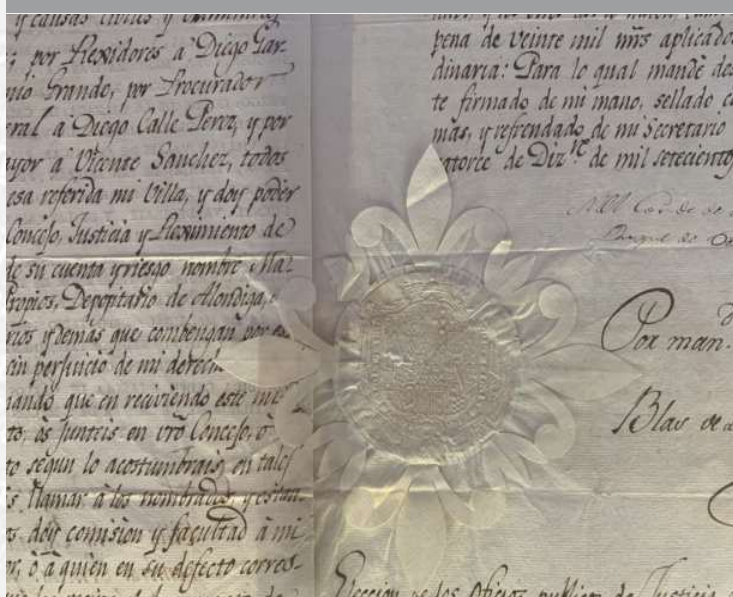 y causas civiles y criminales
por Rexidores à Diego Gar-
nio Grande, por Procurador
eral à Diego Calle Perea, y por
ayor à Vicente Sanchez, todos
esa referida mi Villa, y doy poder
Concejo, Justicia y Reximiento de
de su cuenta y riesgo nombre Ma-
Propios, Depositario de Alondiga,
rios y demás que combengan por
cin perjuicio de mi derecho
mando que en reciviendo este mi
to, os junteis en vro Concejo, ò
to segun lo acostumbrais en tales
s llamar à los nombrados, y estan-
as doy comision y facultad à mi
or, ò à quien en su defecto corres-
pena de veinte mil mrs aplicados
dinaria: Para lo qual mandè des
te firmado de mi mano, sellado co
mas, y refrendado de mi Secretario
atorce de Dizre de mil setecientos
Por mand.
Blas de
Eleccion de los Oficios publicos de Justicia